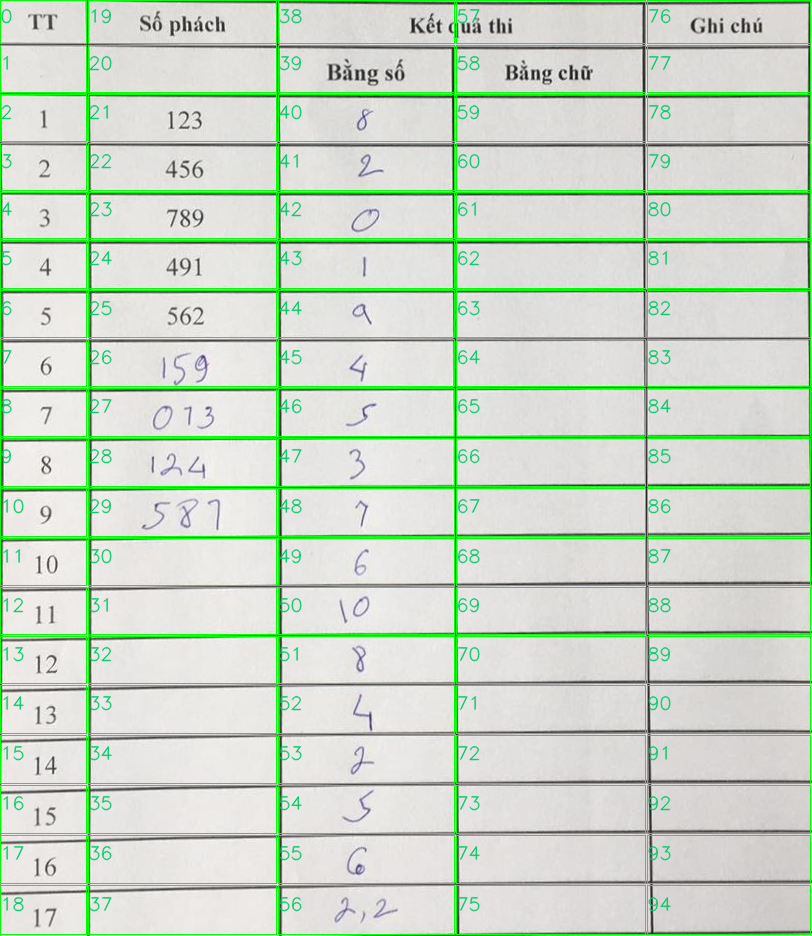 0 TT 19 Số phách 38 Kết quả thi 57 76 Ghi chú
1 20 39 Bằng số 58 Bằng chữ 77
2 1 21 123 40 8 59 78
3 2 22 456 41 2 60 79
4 3 23 789 42 0 61 80
5 4 24 491 43 1 62 81
6 5 25 562 44 9 63 82
7 6 26 159 45 4 64 83
8 7 27 013 46 5 65 84
9 8 28 124 47 3 66 85
10 9 29 587 48 7 67 86
11 10 30 49 6 68 87
12 11 31 50 10 69 88
13 12 32 51 8 70 89
14 13 33 52 4 71 90
15 14 34 53 2 72 91
16 15 35 54 5 73 92
17 16 36 55 6 74 93
18 17 37 56 2,2 75 94